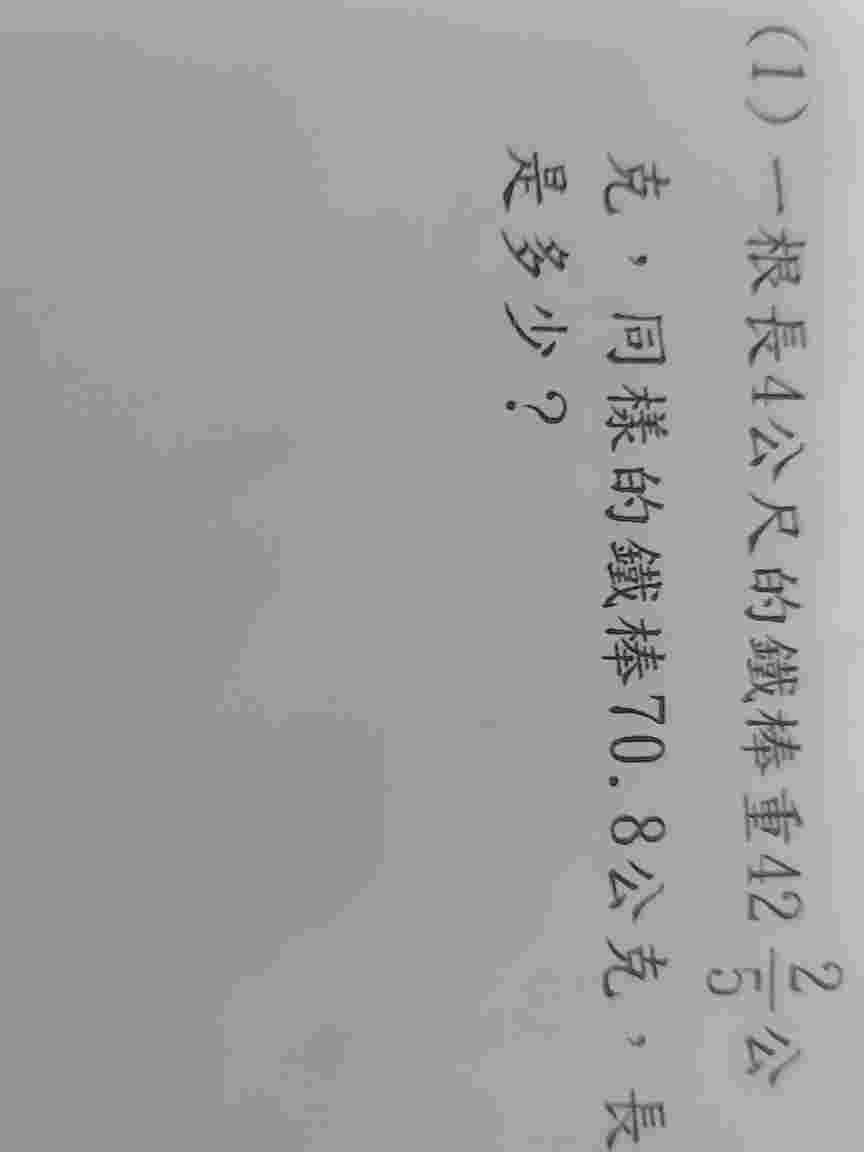 (1)一根長4公尺的鐵棒重42 2/5 公
克，同樣的鐵棒70.8公克，長
是多少？